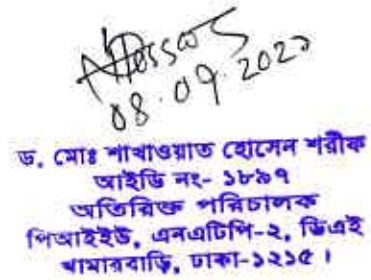 08.09.2022
ড. মোঃ শাখাওয়াত হোসেন শরীফ
আইডি নং- ১৮৯৭
অতিরিক্ত পরিচালক
পিআইইউ, এনএটিপি-২, ডিএই
খামারবাড়ি, ঢাকা-১২১৫।